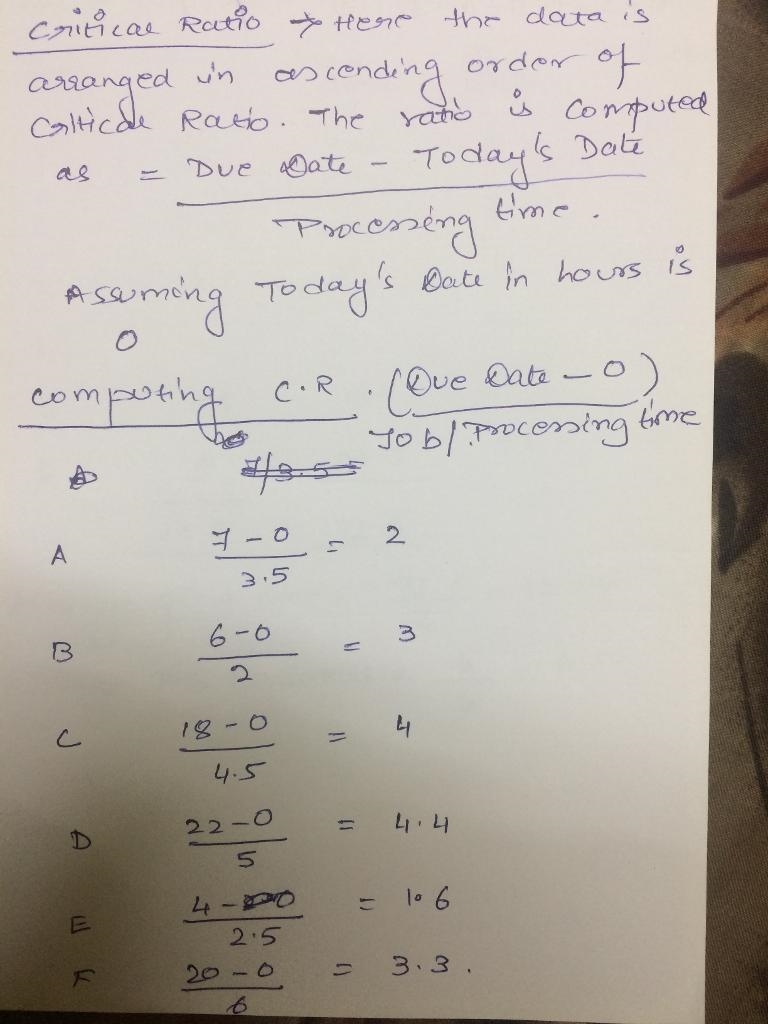 Critical Ratio → Here the data is
arranged in ascending order of
Critical Ratio. The ratio is computed
as = Due Date - Today's Date
Processing time.
Assuming Today's Date in hours is
0
computing C.R. (Due Date - 0)
Job/Processing time
7/3.5
A 7-0 = 2
3.5
B 6-0 = 3
2
C 18-0 = 4
4.5
D 22-0 = 4.4
5
E 4-0 = 1.6
2.5
F 20-0 = 3.3.
6